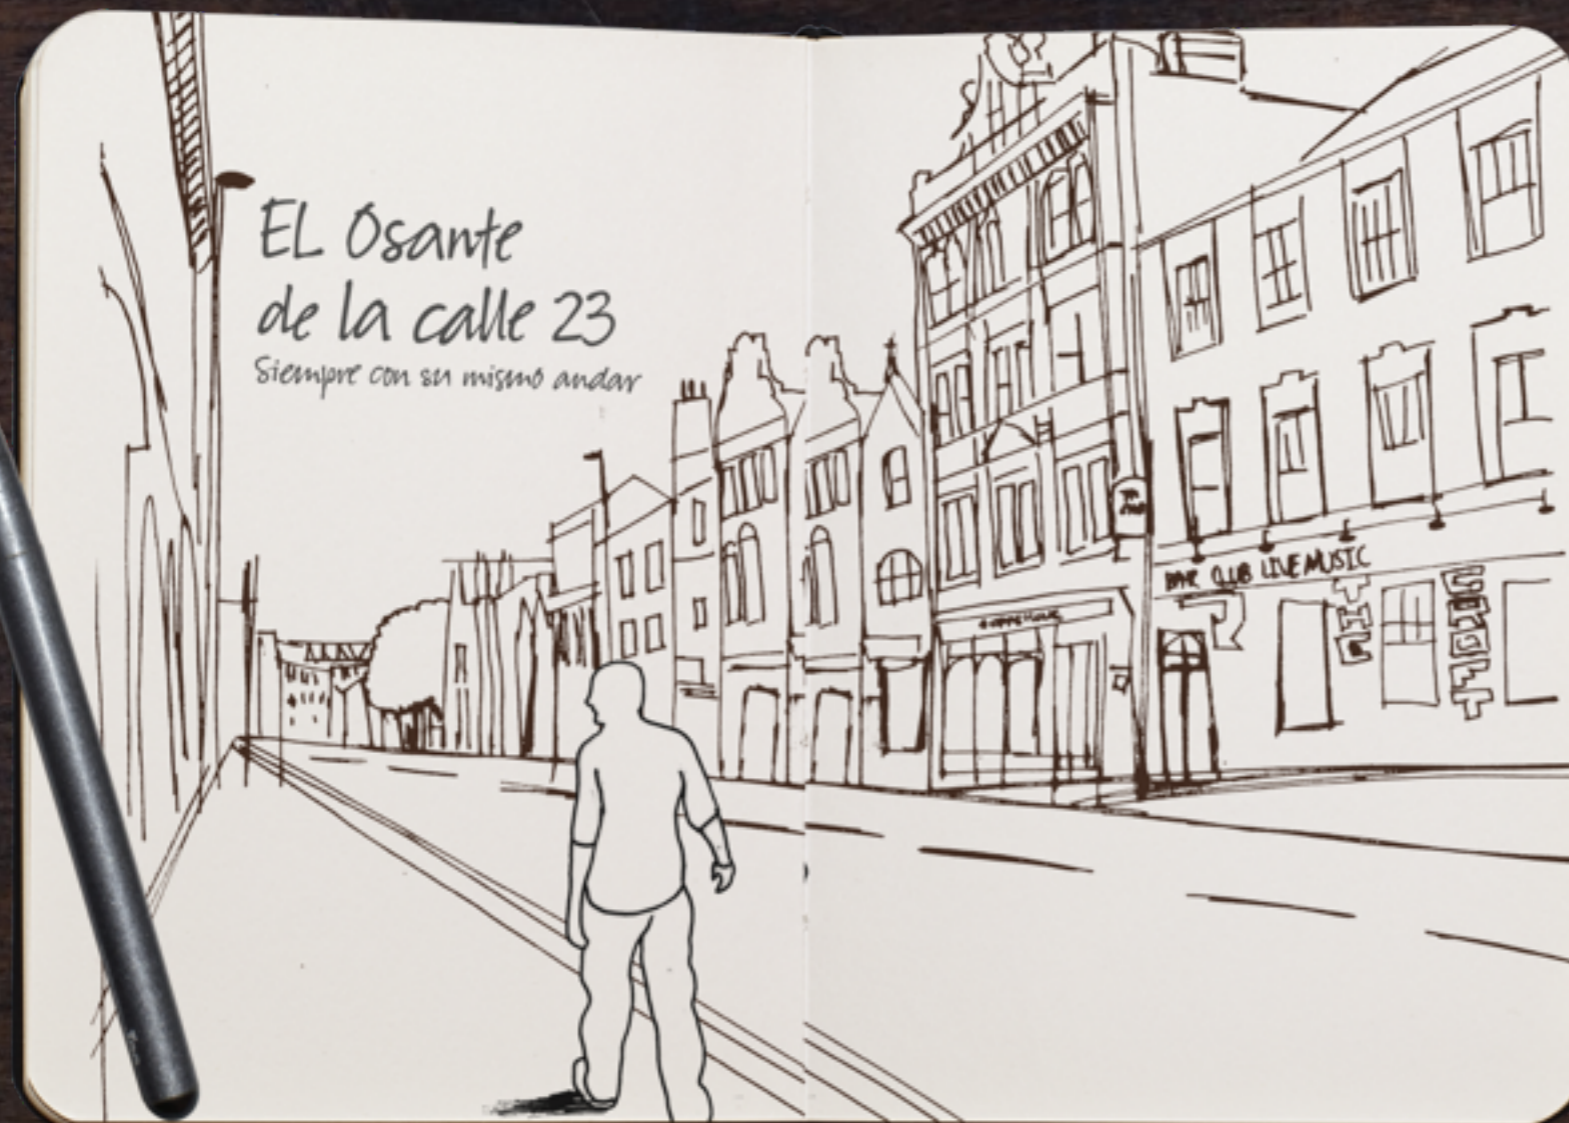 EL Osante
de la calle 23
Siempre con su mismo andar
BAR CLUB LIVE MUSIC
THE